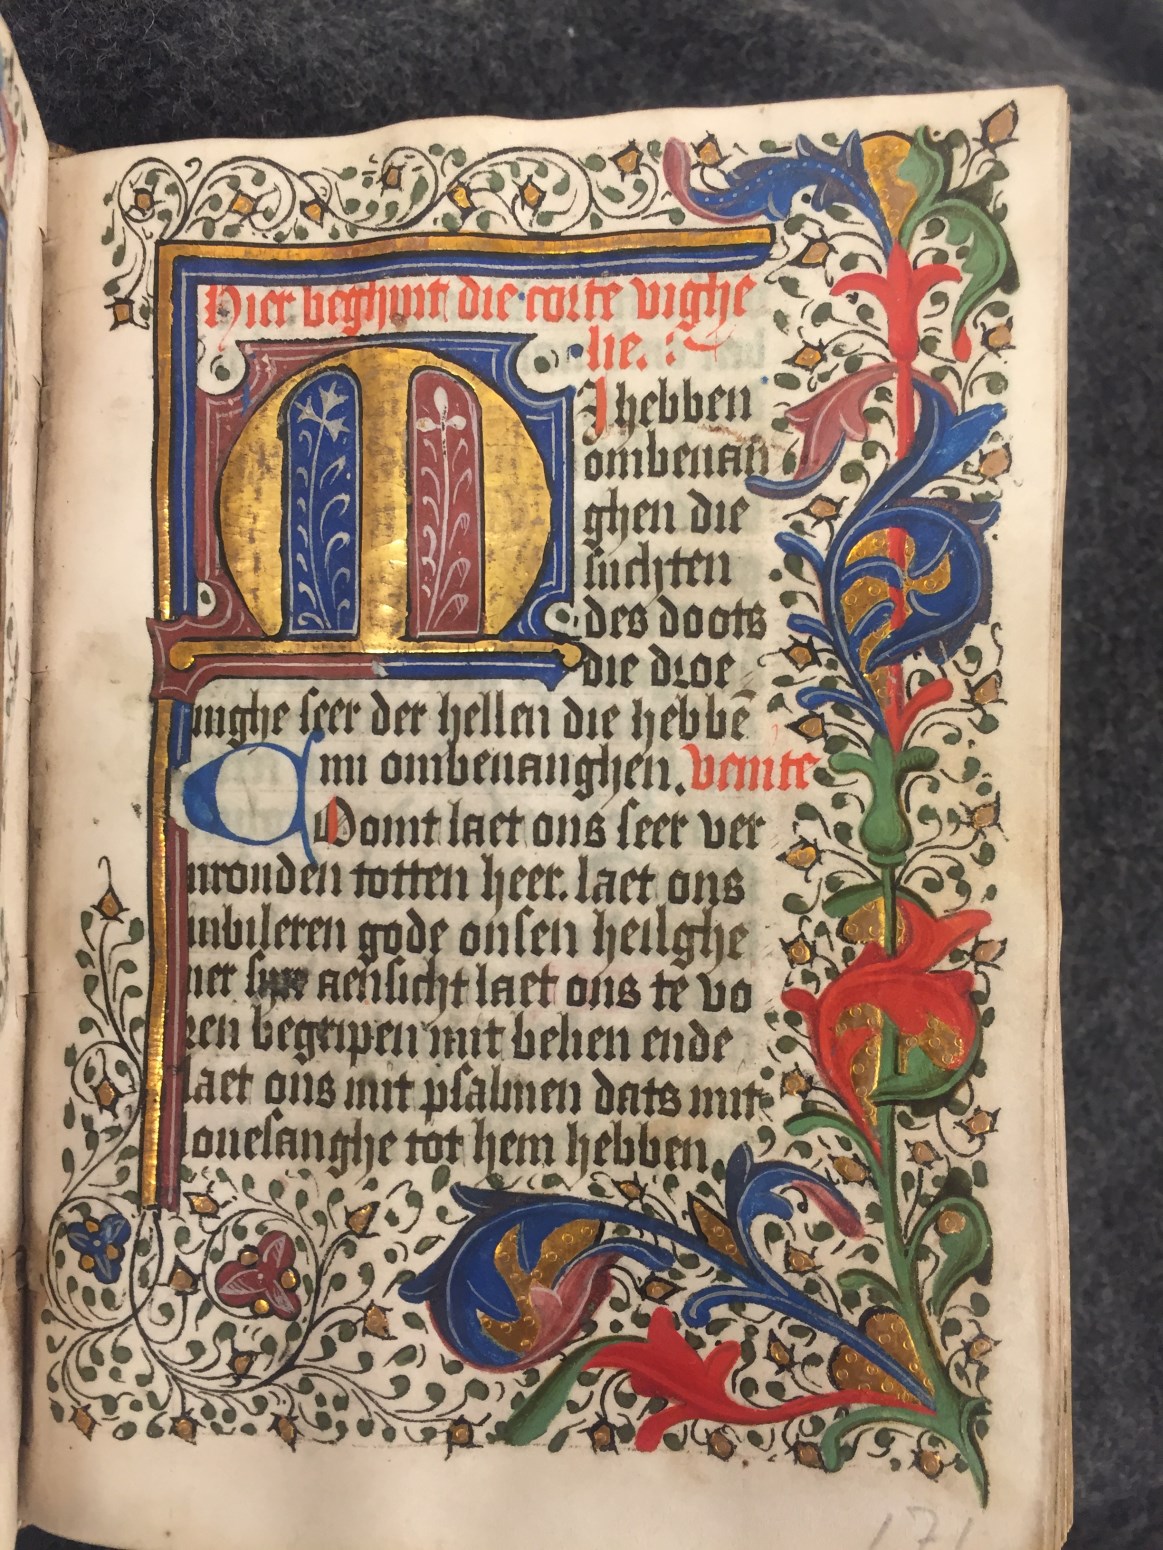 Hier beghint die corte vighe
lie.
M I hebben
ombeuan
ghen die
suchten
des doots
die droe
nighe seer der hellen die hebbē
mi ombeuanghen. venite
C Oomt laet ons seer ver
urouden totten heer. laet ons
iubileren gode onsen heilghe
uer aensicht laet ons te vo
ren begripen mit belien ende
laet ons mit psalmen dats mit
louesanghe tot hem hebben
171